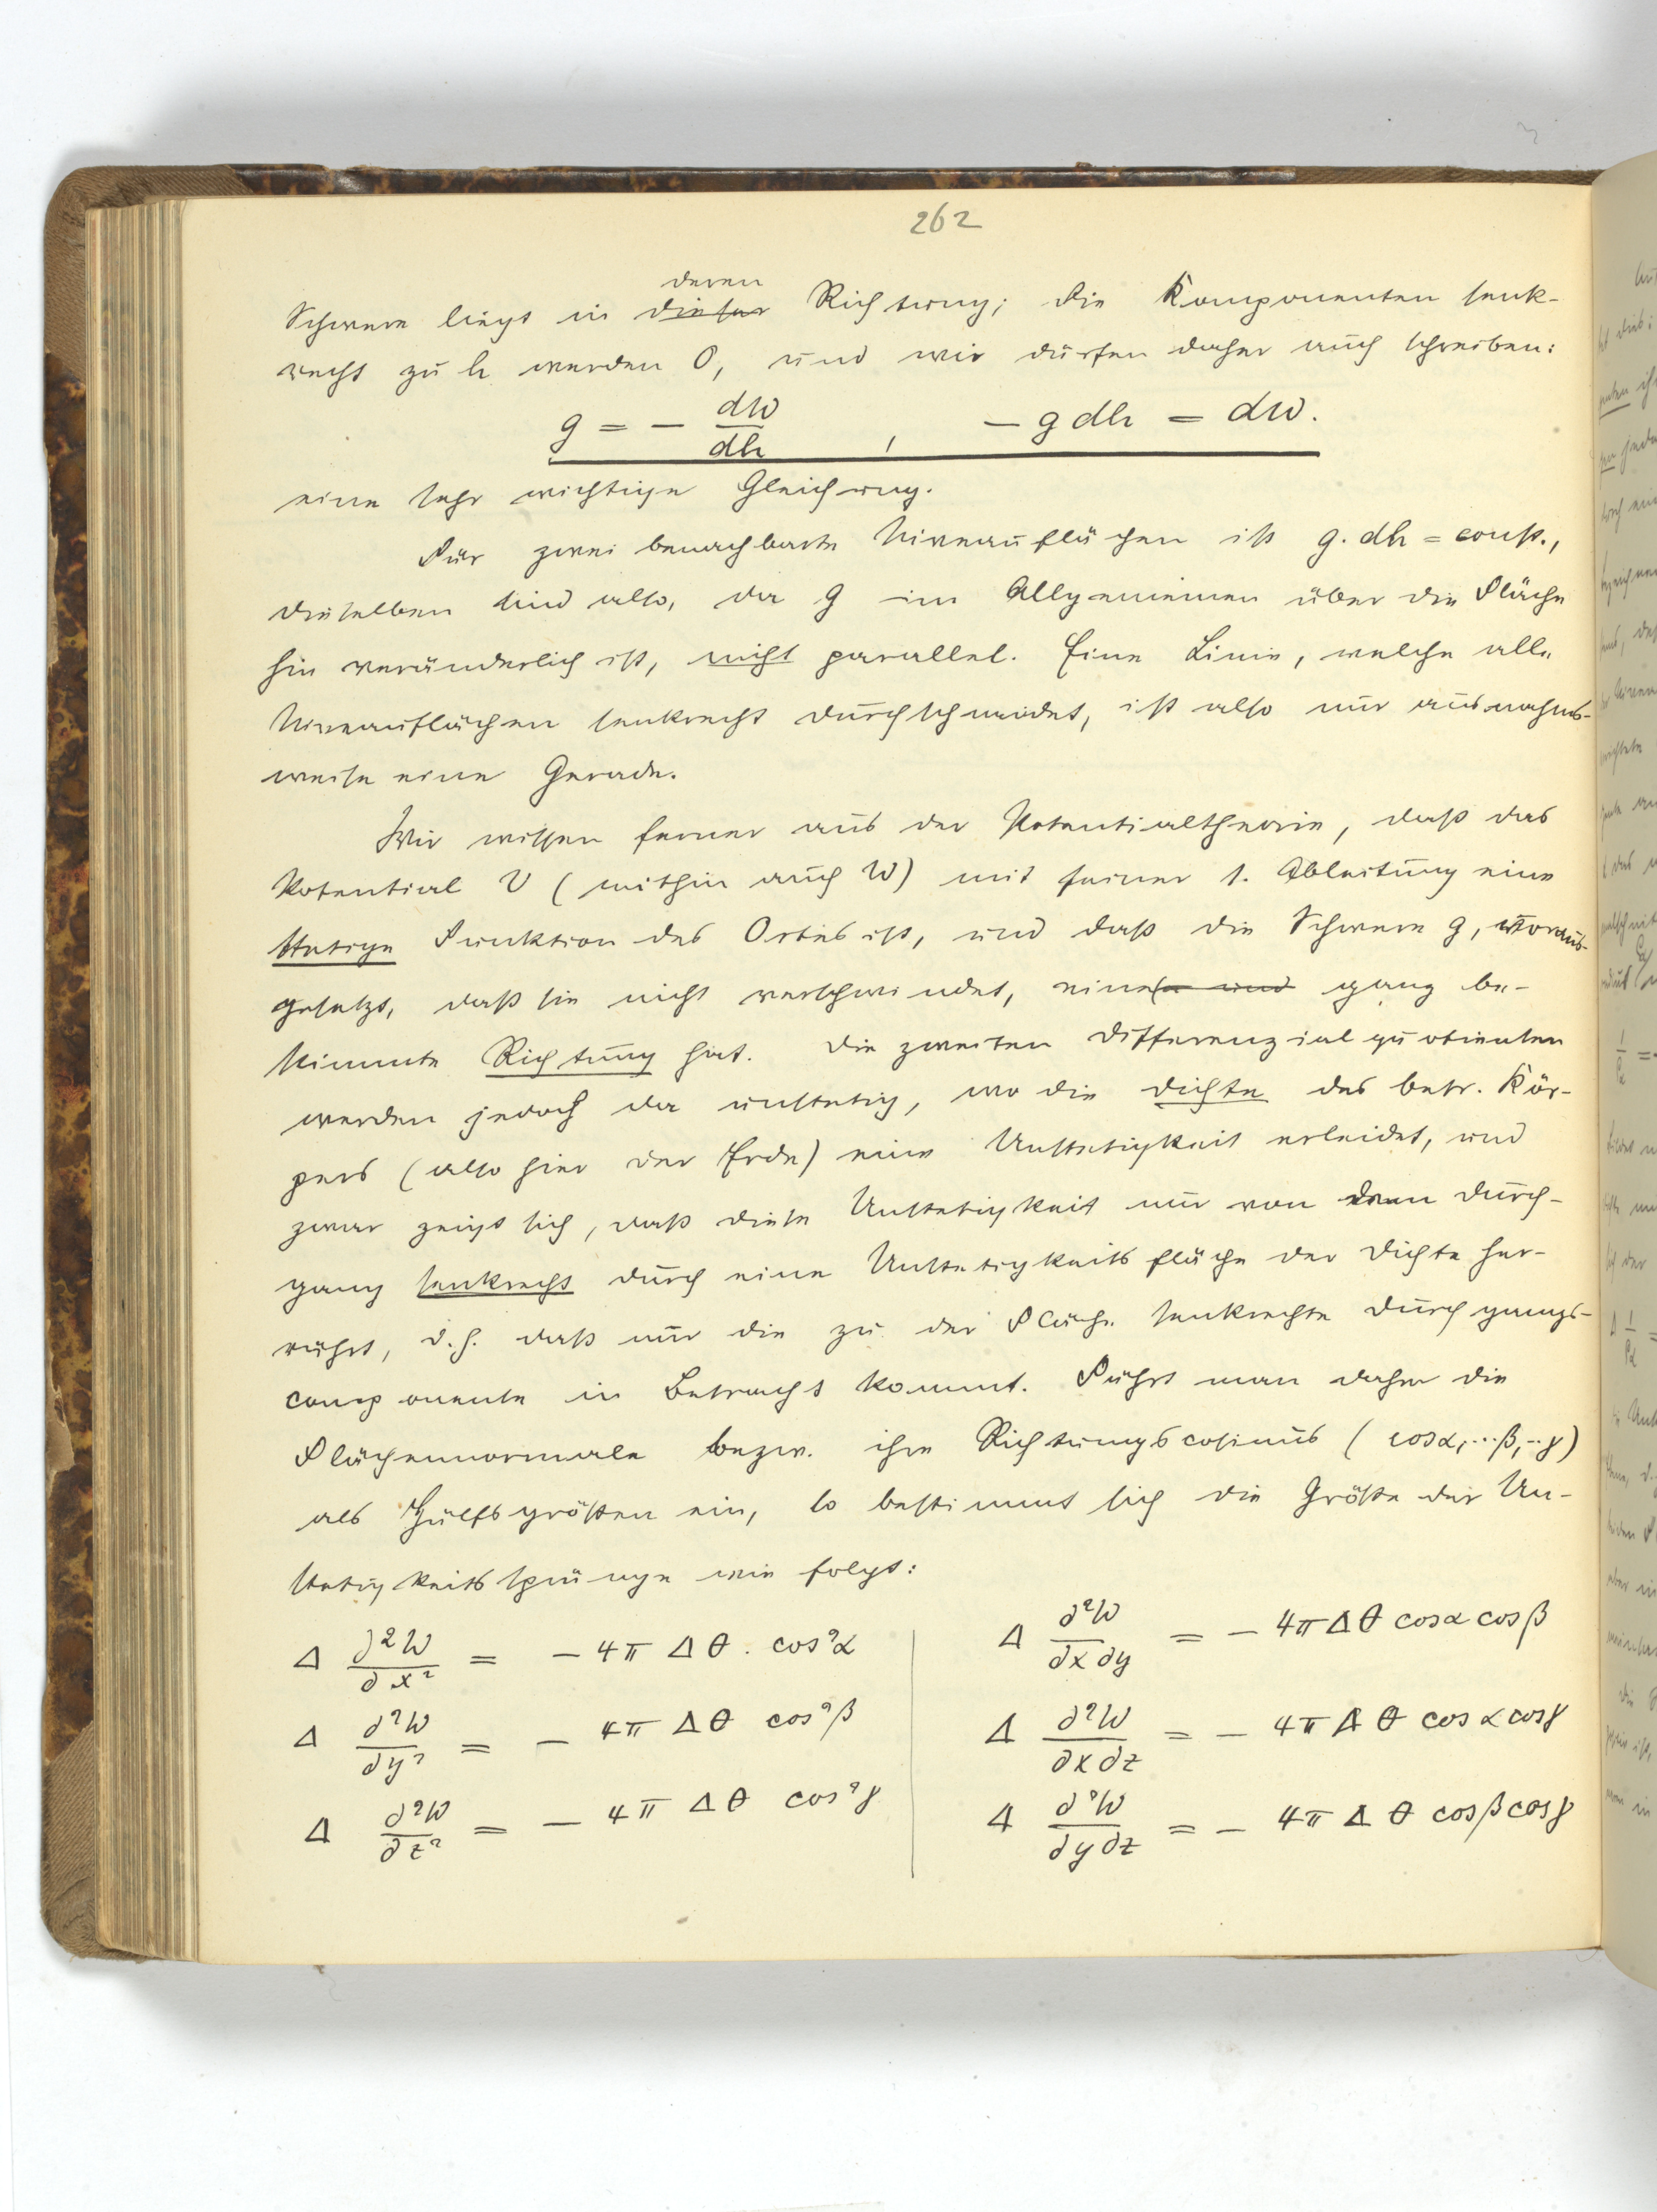 262
deren
Schwere liegt in dieser Richtung; die Komponenten senk-
recht zu h werden 0, und wir dürfen daher auch schreiben:
g = - dW/dh , - g dh = dW.
eine sehr wichtige Gleichung.
Für zwei benachbarte Niveauflächen ist g. dh = const.,
dieselben sind also, da g im Allgemeinen über die Fläche
hin veränderlich ist, nicht parallel. Eine Linie, welche alle
Niveauflächen senkrecht durchschneidet, ist also nur ausnahms-
weise eine Gerade.
Wir wissen ferner aus der Potentialtheorie, daß das
Potential V (mithin auch W) mit seiner 1. Ableitung eine
stetige Funktion des Ortes ist, und daß die Schwere g, voraus-
gesetzt, daß sie nicht verschwindet, eine und ganz be-
stimmte Richtung hat. Die zweiten Differenzialquotienten
werden jedoch da unstetig, wo die Dichte des betr. Kör-
pers (also hier der Erde) eine Unstetigkeit erleidet, und
zwar zeigt sich, daß diese Unstetigkeit nur von dem Durch-
gang senkrecht durch eine Unstetigkeitsfläche der Dichte her-
rührt, d.h. daß nur die zu der Fläche senkrechte Durchgangs-
componente in Betracht kommt. Führt man daher die
Flächennormale bezw. ihre Richtungscosinus (cosα,...β,..γ)
als Hülfsgrößen ein, so bestimmt sich die Größe der Un-
stetigkeitssprünge wie folgt:
Δ ∂²W/∂x² = - 4π Δθ . cos²α
Δ ∂²W/∂y² = - 4π Δθ cos²β
Δ ∂²W/∂z² = - 4π Δθ cos²γ
Δ ∂²W/∂x∂y = - 4π Δθ cosα cosβ
Δ ∂²W/∂x∂z = - 4π Δθ cosα cosγ
Δ ∂²W/∂y∂z = - 4π Δθ cosβ cosγ